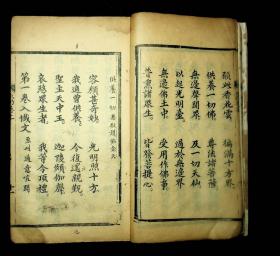 願此香花雲　徧滿十方界
供養一切佛　尊法諸菩薩
無邊聲聞眾　及一切天仙
以起光明臺　過於無邊界
無邊佛土中　受用作佛事
普熏諸眾生　皆發菩提心
供養一切恭敬
容顏甚奇妙　光明照十方
我適曾供養　今復還親覲
聖主天中王　迦陵頻伽聲
哀愍眾生者　我等今敬禮
第一卷入懺文